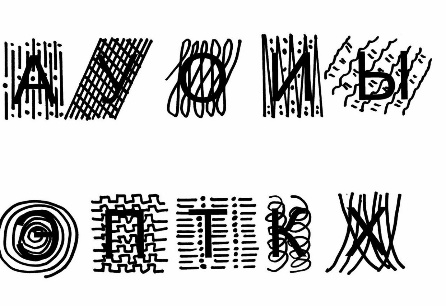 А У О И Ы
Э П Т К Х